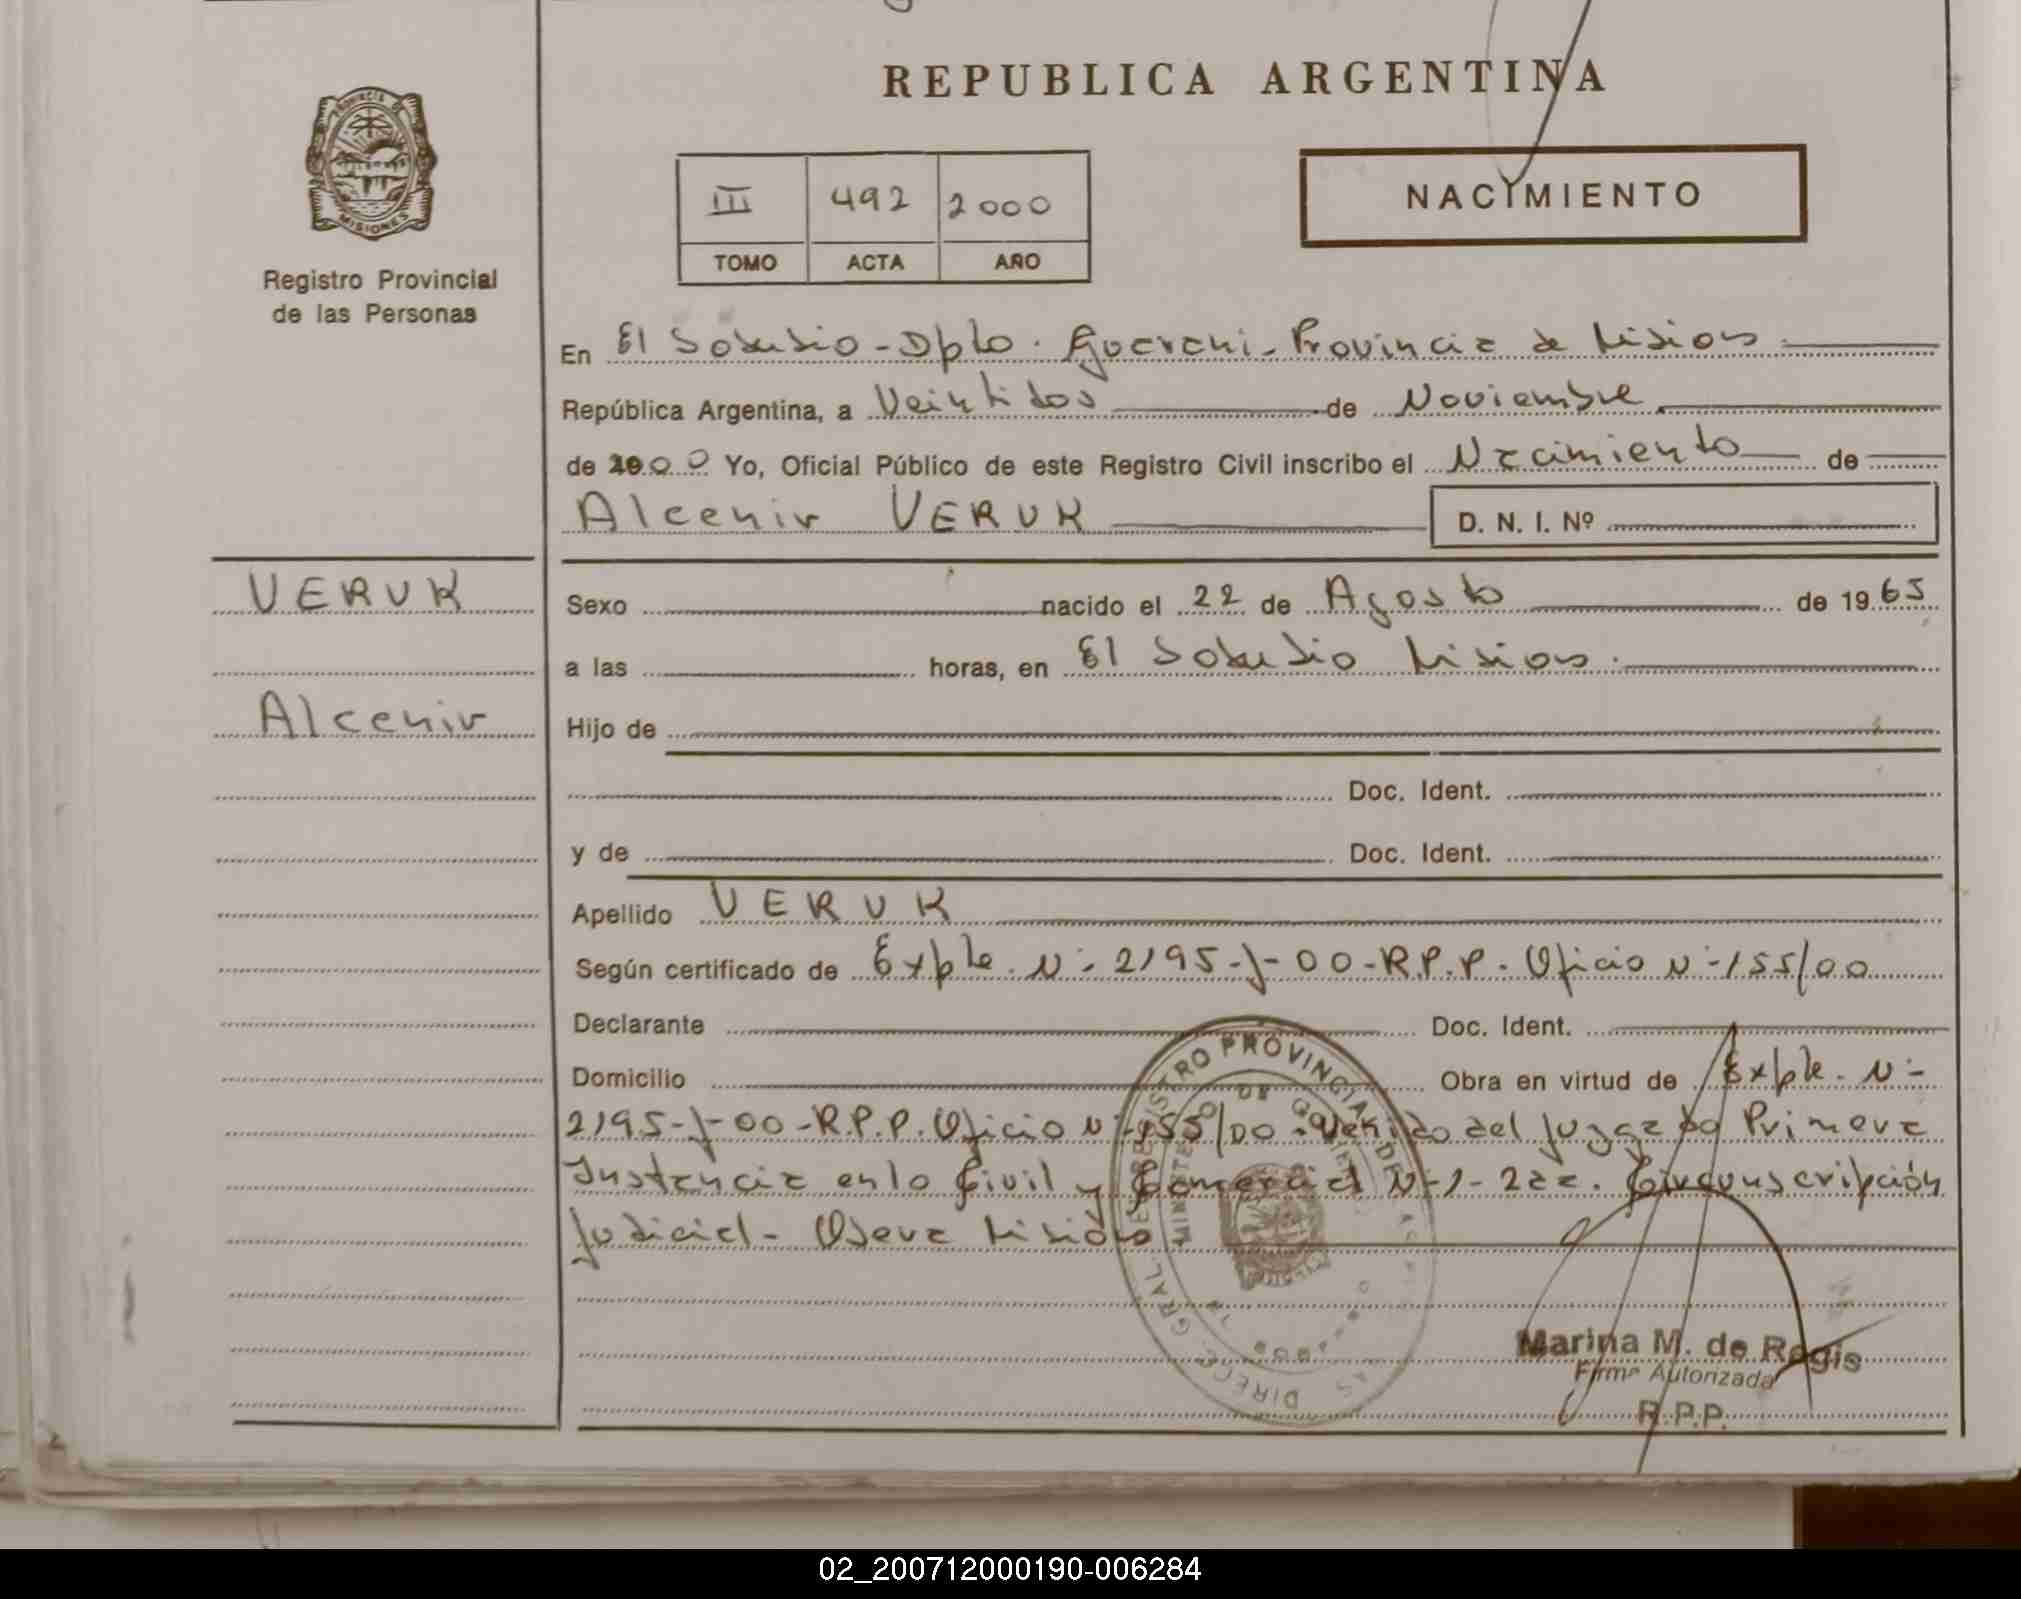 REPUBLICA ARGENTINA
PROVINCIA DE
MISIONES
Registro Provincial
de las Personas
III 492 2000
TOMO ACTA AÑO
NACIMIENTO
En El Soberbio - Dpto. Guarani - Provincia de Misiones
República Argentina, a Veintidos de Noviembre
de 2000 Yo, Oficial Público de este Registro Civil inscribo el Nacimiento de
Alcenir VERUK D. N. I. Nº
VERUK
Alcenir
Sexo nacido el 22 de Agosto de 1965
a las horas, en El Soberbio Misiones.
Hijo de
Doc. Ident.
y de Doc. Ident.
Apellido VERUK
Según certificado de Expte. N: 2195-J-00-R.P.P. Oficio N-155/00
Declarante Doc. Ident.
Domicilio Obra en virtud de Expte. N-
2195-J-00-R.P.P. Oficio N-155/00. Venido del Juzgado Primera
Instancia en lo Civil y Comercial N-1-2da. Circunscripción
Judicial - Obera Misiones
Marina M. de Regis
Firma Autorizada
R.P.P.
02_200712000190-006284